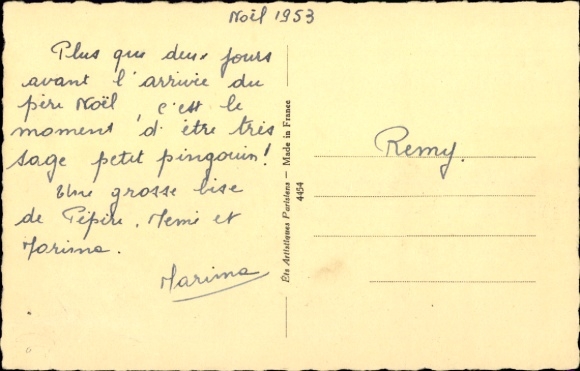 Noël 1953
Plus que deux jours
avant l'arrivée du
père Noël c'est le
moment d'être très
sage petit pingouin!
Une grosse bise
de Pépire, Memé et
Marima.
Marima
Éts Artistiques Parisiens — Made in France
4454
Remy.